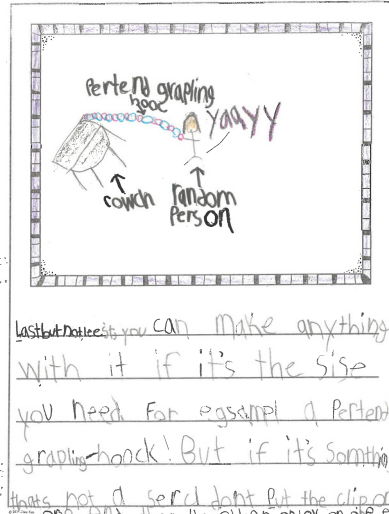 Pertend grapling
hooc
Yaayy
cowch
random
Person
Last but not lee st you can make anything
with it if it's the sise
you need. For egsampl a Pertend
grapling-hoock! But if it's somthn
thats not a sercl dont Put the clip on